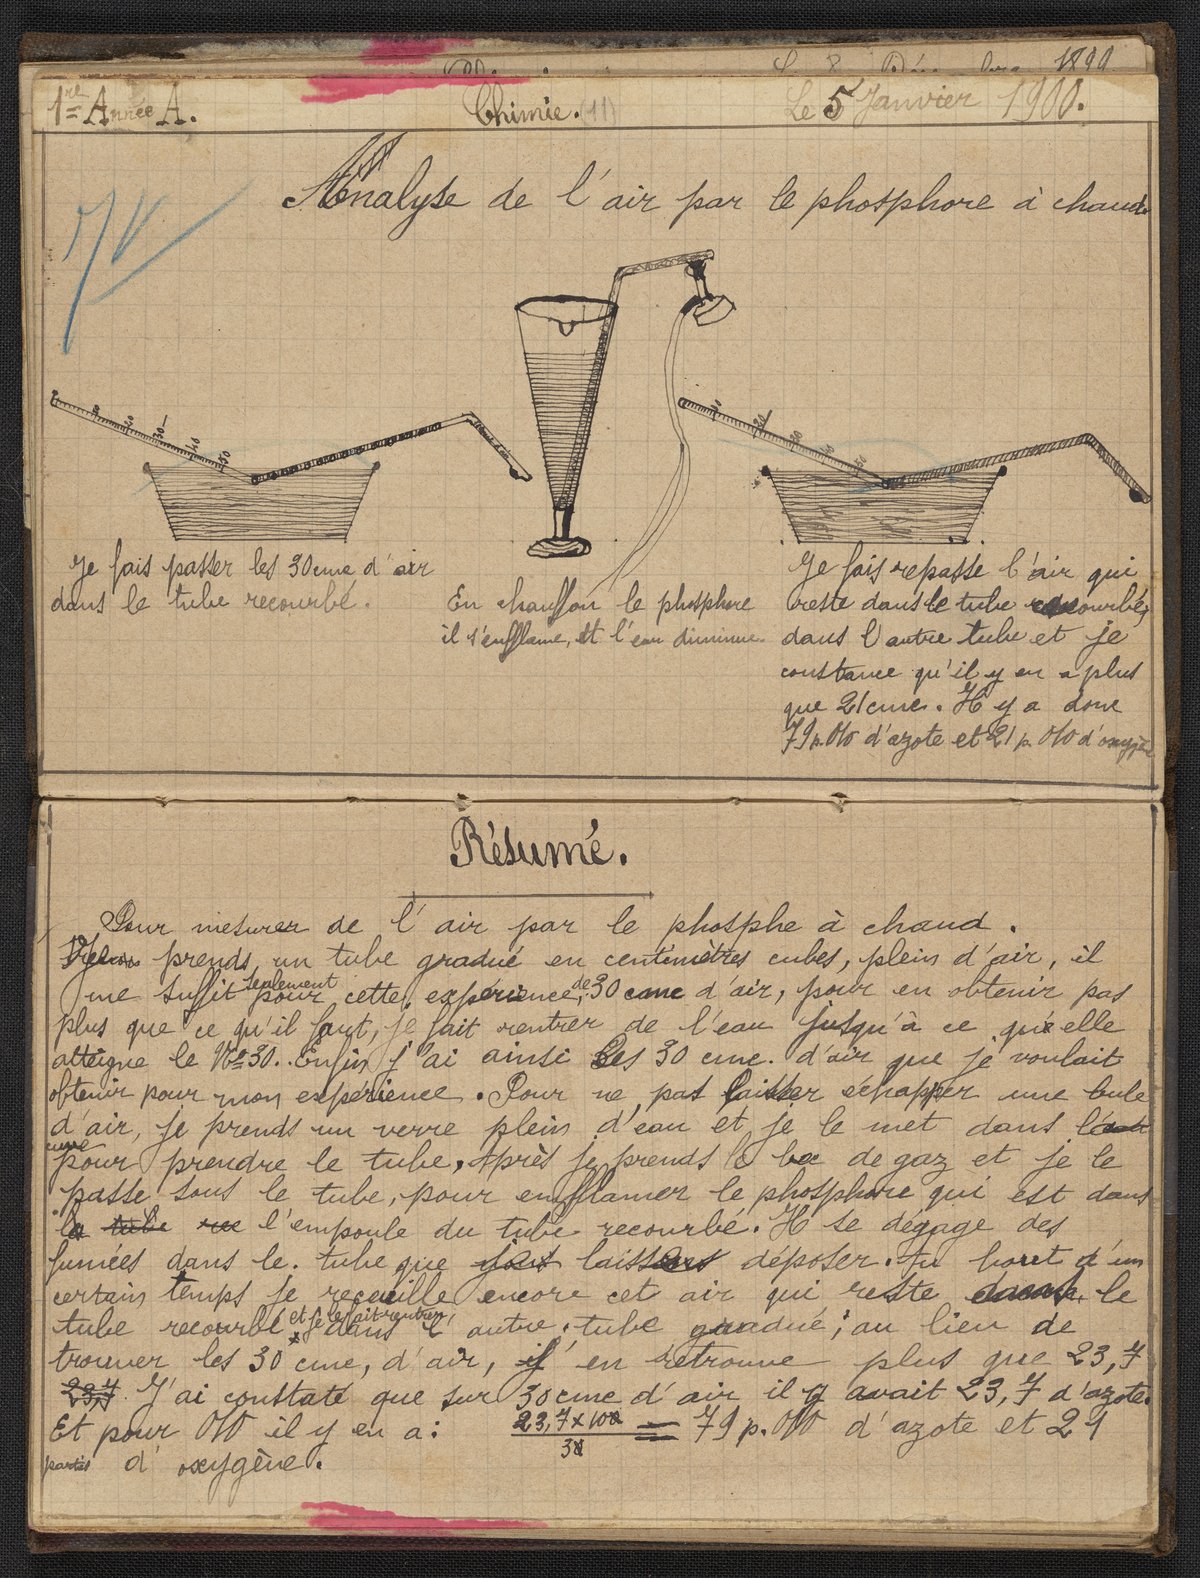 1899
1re Année A.
Chimie. (11)
Le 5 Janvier 1900.
Analyse de l'air par le phosphore à chaud.
20 30 40 50
10 20 30 40 50
Je fais passer les 30 cme d'air
dans le tube recourbé.
En chauffon le phosphore
il s'enfflame, et l'eau diminue.
Je fais repasse l'air qui
reste dans le tube recourbé,
dans l'autre tube et je
constance qu'il y en a plus
que 21 cme. Il y a donc
79 p. 0/0 d'azote et 21 p. 0/0 d'oxygène
Résumé.
Pour mesurer de l'air par le phosphe à chaud.
Je prends un tube gradué en centimètres cubes, plein d'air, il
me suffit seulement pour cette, expérience, de 30 cme d'air, pour en obtenir pas
plus que ce qu'il faut, je fait rentrer de l'eau jusqu'à ce qu'elle
atteigne le No 30. Enfin j'ai ainsi les 30 cme. d'air que je voulait
obtenir pour mon expérience. Pour ne pas laisser échapper une bule
d'air, je prends un verre plein d'eau et je le met dans la
cuve pour prendre le tube. Après je prends le bec de gaz et je le
passe sous le tube, pour enfflamer le phosphore qui est dans
le tube l'empoule du tube recourbé. Il se dégage des
fumées dans le tube que laissons déposer. Au bout d'un
certain temps je receuille encore cet air qui reste dans le
tube recourbé et je le fait rentrer dans l'autre tube gradué; au lieu de
trouver les 30 cme, d'air, j'en retrouve plus que 23,7
23,7 J'ai constaté que sur 30 cme d'air il y avait 23,7 d'azote.
Et pour 0/0 il y en a: 23,7 x 100 / 30 = 79 p. 0/0 d'azote et 21
parties d'oxygène.